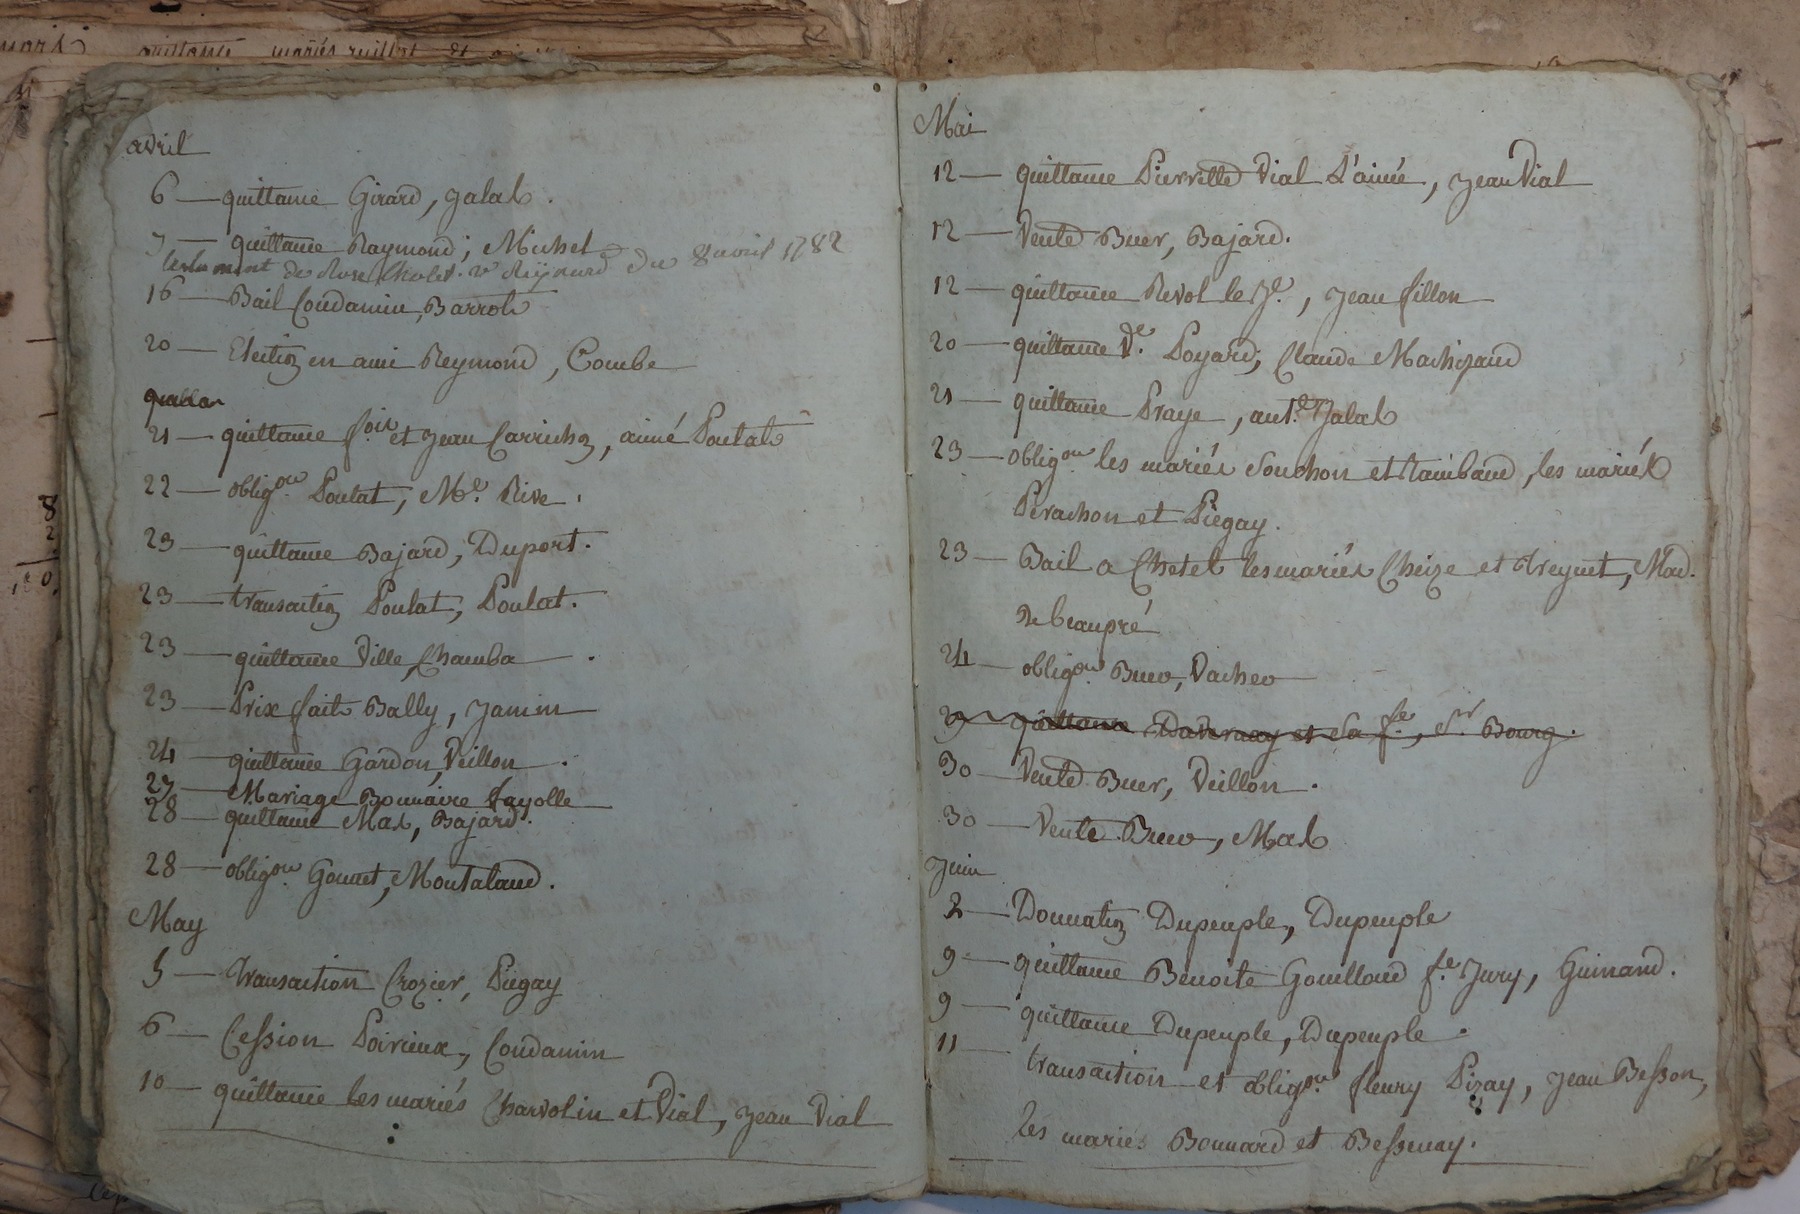 avril
6 — quittance Girard, jalat.
7 — quittance Raymond; Michel
testament de Rose Cholet ve Reynard du 8 avril 1782
16 — Bail Condamin, Barrot
20 — Election en ami Reymond, Combe
21 — quittance fois et jean Carrichon, aimé Poulat
22 — obligon. Poulat, Me. Rive.
23 — quittance Bajard, Duport.
23 — transaction Poulat, Poulat.
23 — quittance Ville, Chamba.
23 — Prix fait Bally, janin
24 — quittance Gardon, Veillon.
27 — Mariage Bonnaire fayolle
28 — quittance Mas, Bajard.
28 — obligon. Gonnet, Montaland.
May
5 — transaction Crozier, Piegay
6 — Cession Poirieux, Condamin
10 — quittance les mariés Charvolin et Vial, jean Vial
Mai
12 — quittance Pierrette Vial L'ainée, jean Vial
12 — Vente Buer, Bajard.
12 — quittance Revol le Je., jean fillon
20 — quittance Ve. Poyard; Claude
21 — quittance Praye, ante. Jalat
23 — obligon. les mariés Souchon et Raimbaud, les mariés
Perachon et Piegay.
23 — Bail a Chetel les mariés Cheize et Treynet, Mad.
De beaupré
24 — obligon. Buer, Vacher
29 quittance et Sa fe, Sr. Bourg.
30 — Vente Buer, Veillon.
30 — Vente Buer, Mas
Juin
2 — Donnation Dupeuple, Dupeuple
9 — quittance Benoite Gouilloud fe. Jury, Guinand.
9 — quittance Dupeuple, Dupeuple.
11 — transaction et obligon. fleury Pizay, jean Besson,
les mariés Bonnard et Bessenay.